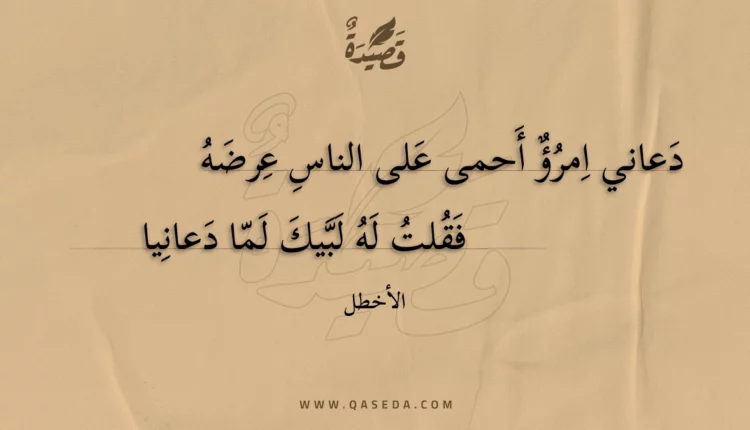 قَصِيْدَةٌ
دَعاني اِمرُؤٌ أَحمى عَلى الناسِ عِرضَهُ
فَقُلتُ لَهُ لَبَّيكَ لَمّا دَعانِيا
الأخطل
WWW.QASEDA.COM